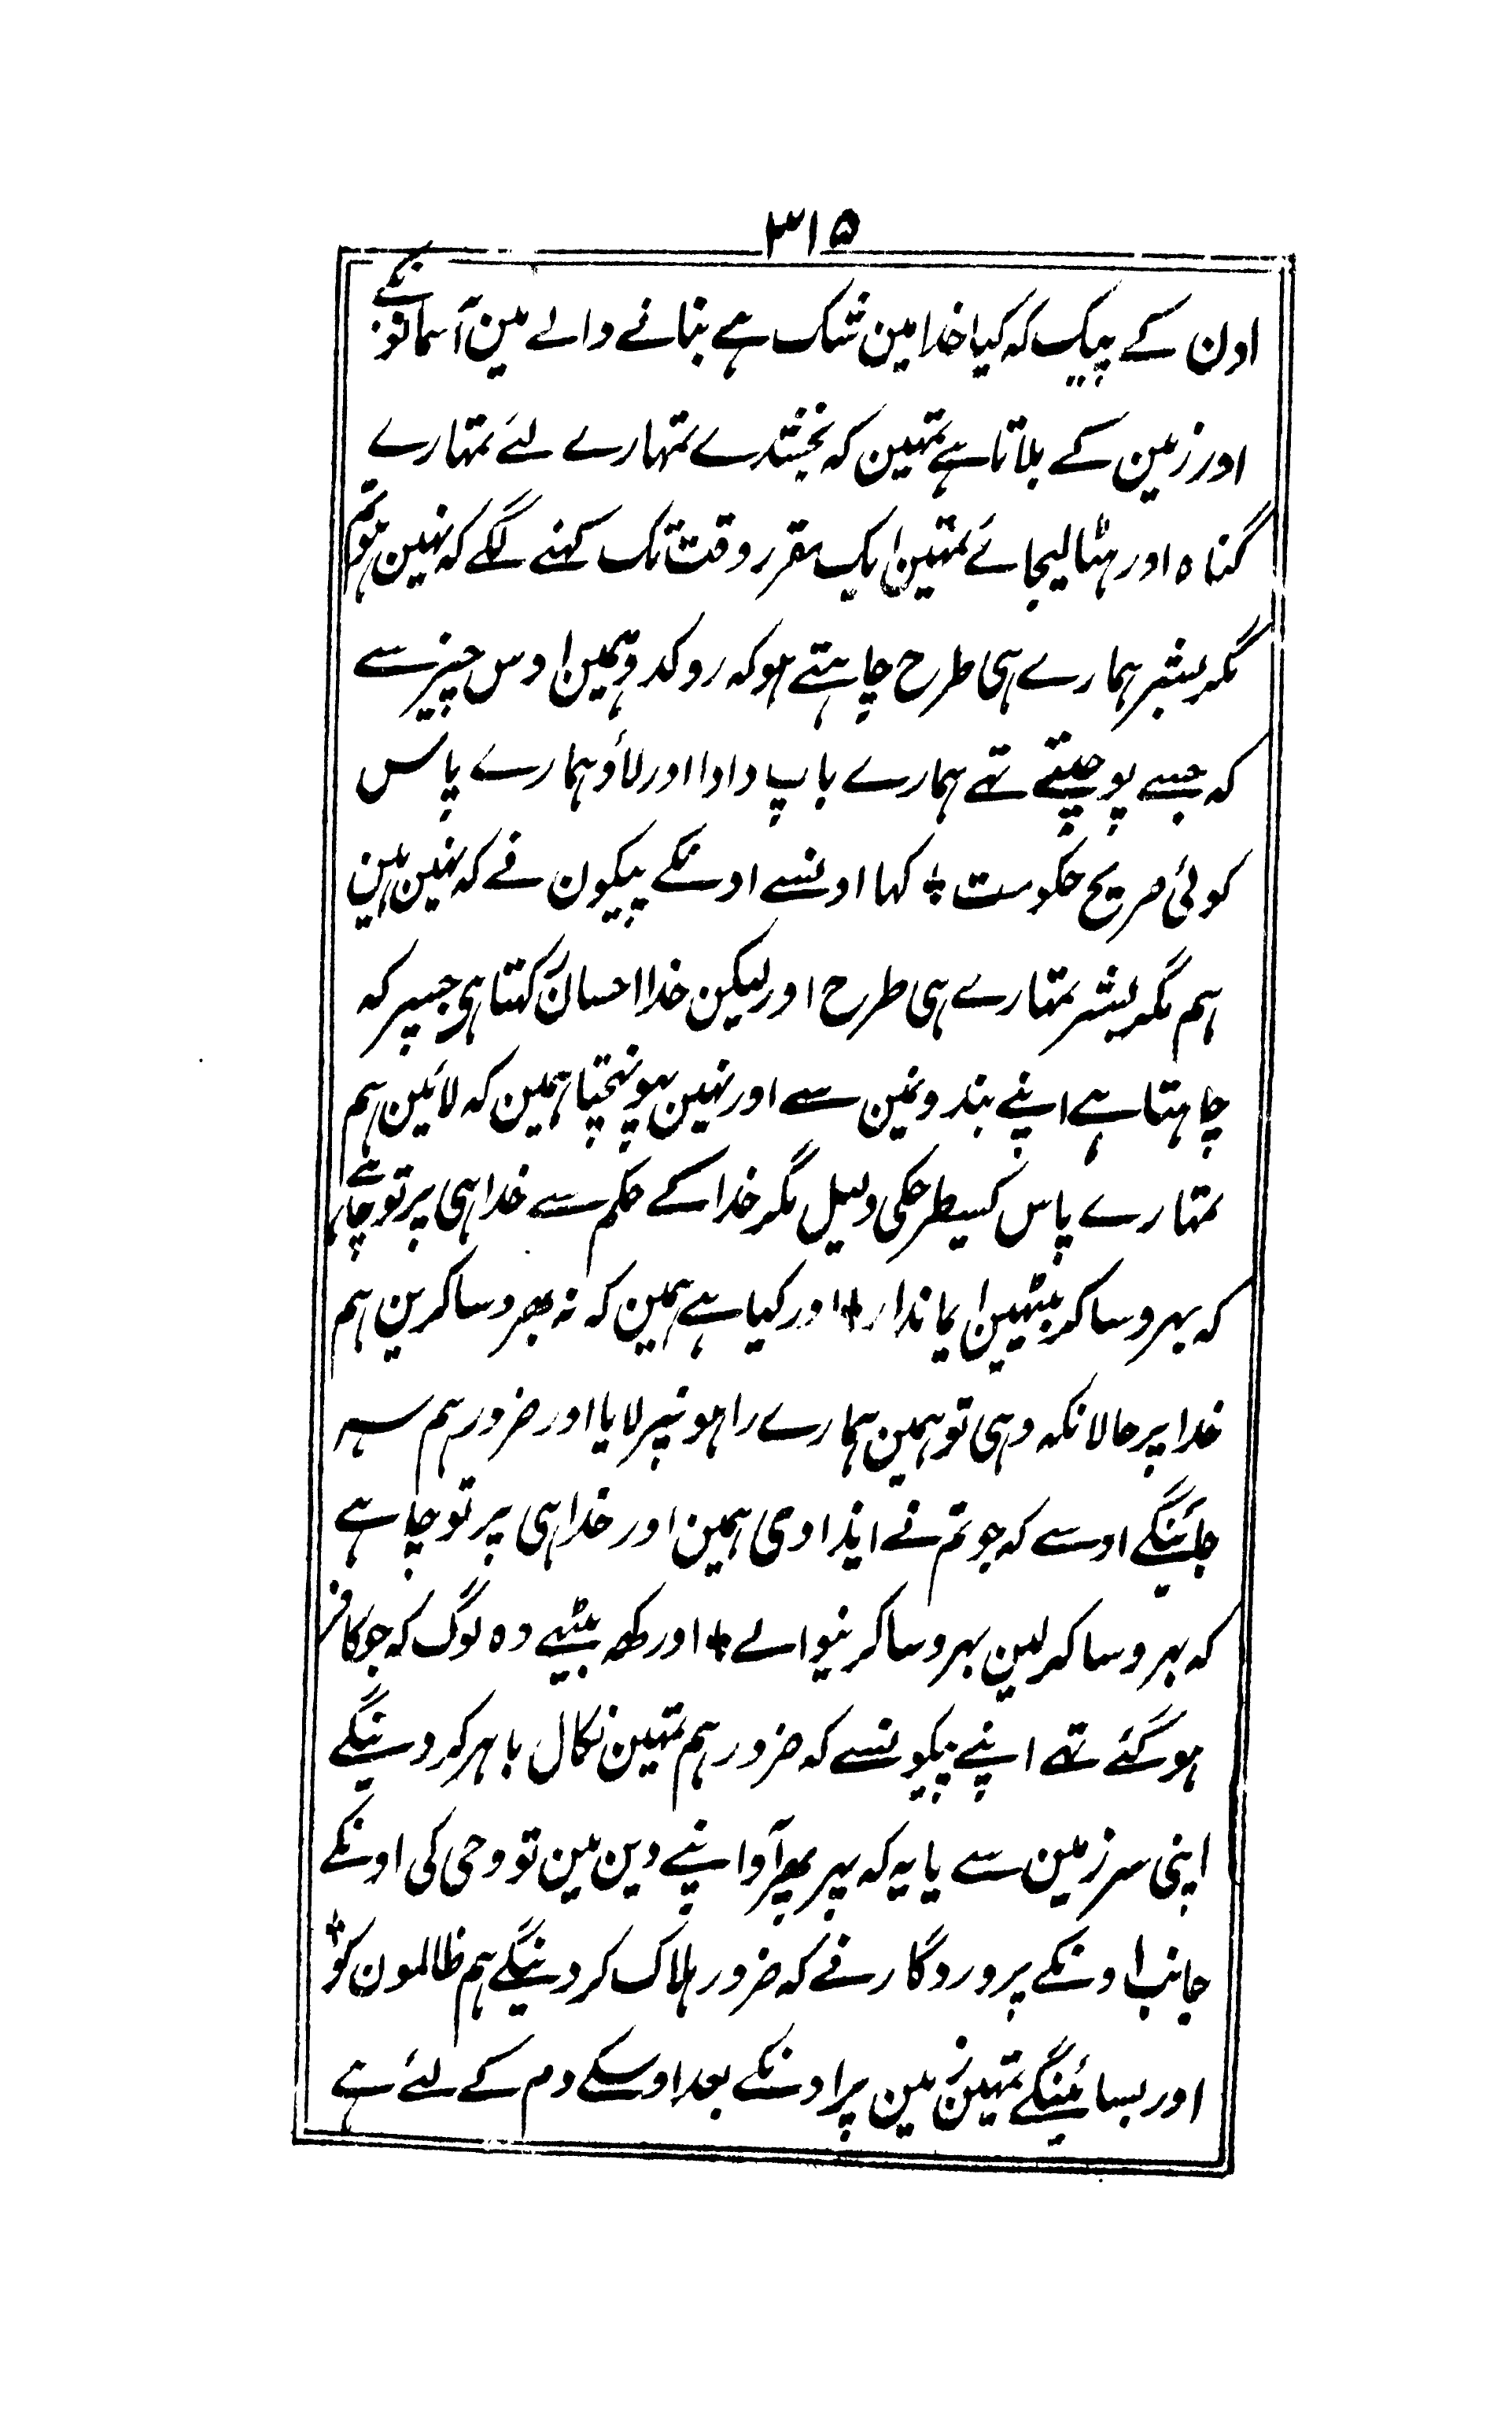 ٣١٥
اون کے پیک کہ کیا خدا مین شک ہے بنانے والے مین آسمانونکے
اور زمین کے بلاتا ہے تمہین کہ بخشدے تمہارے لئے تمہارے
گناہ اور ہٹا لیجائے تمہین ایک مقرر وقت تک کہنے لگے کہ نہین ہو تم
مگر بشر ہمارے ہی طرح چاہتے ہو کہ روکدو ہمین اوس چیز سے
کہ جسے پوجتے تھے ہمارے باپ دادا اور لاؤ ہمارے پاس
کوئی صریح حکومت ٭ کہا اونسے اونکے پیکون نے کہ نہین ہین
ہم مگر بشر تمہارے ہی طرح اور لیکن خدا احسان رکہتا ہی جسپر کہ
چاہتا ہے اپنے بندونمین سے اور نہین پہونچتا ہمین کہ لائین ہم
تمہارے پاس کسیطرحکی دلیل مگر خدا کے حکم سے خدا ہی پر تو چاہئے
کہ بہروسا کر بیٹہین ایماندار ٭ اور کیا ہے ہمین کہ نہ بھروسا کرین ہم
خدا پر حالانکہ وہی تو ہمین ہمارے راہونپر لایا اور ضرور ہم سہہ
جائینگے اوسے کہ جو تم نے ایذا دی ہمین اور خدا ہی پر تو چاہے
کہ بہروسا کرلین بہروسا کرنیوالے ٭ اور کہہ بیٹہے وہ لوگ کہ جو کافر
ہو گئے تھے اپنے پیکونسے کہ ضرور ہم تمہین نکال باہر کر دینگے
اپنی سرزمین سے یا یہ کہ پہر پھر آو اپنے دین مین تو وحی کی اونکے
جانب اونکے پروردگار نے کہ ضرور ہلاک کر دینگے ہم ظالمون کو ٭
اور بسائینگے تمہین زمین پر اونکے بعد اوسکے دم کے لئے ہے